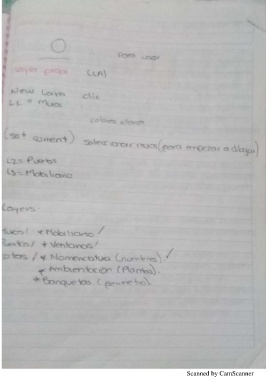 Para usar
Layer props (LA)
New Layer clic
L1 = Muros
colores claros
(set current) seleccionar muros (para empezar a dibujar)
L2 = Puertas
L3 = Mobiliario
Layers:
Muros/ * Mobiliario /
Puertas/ * Ventanas/
/ * Nomenclatura (nombres). /
* Ambientación (Plantas).
* Banquetas (perímetro).
Scanned by CamScanner